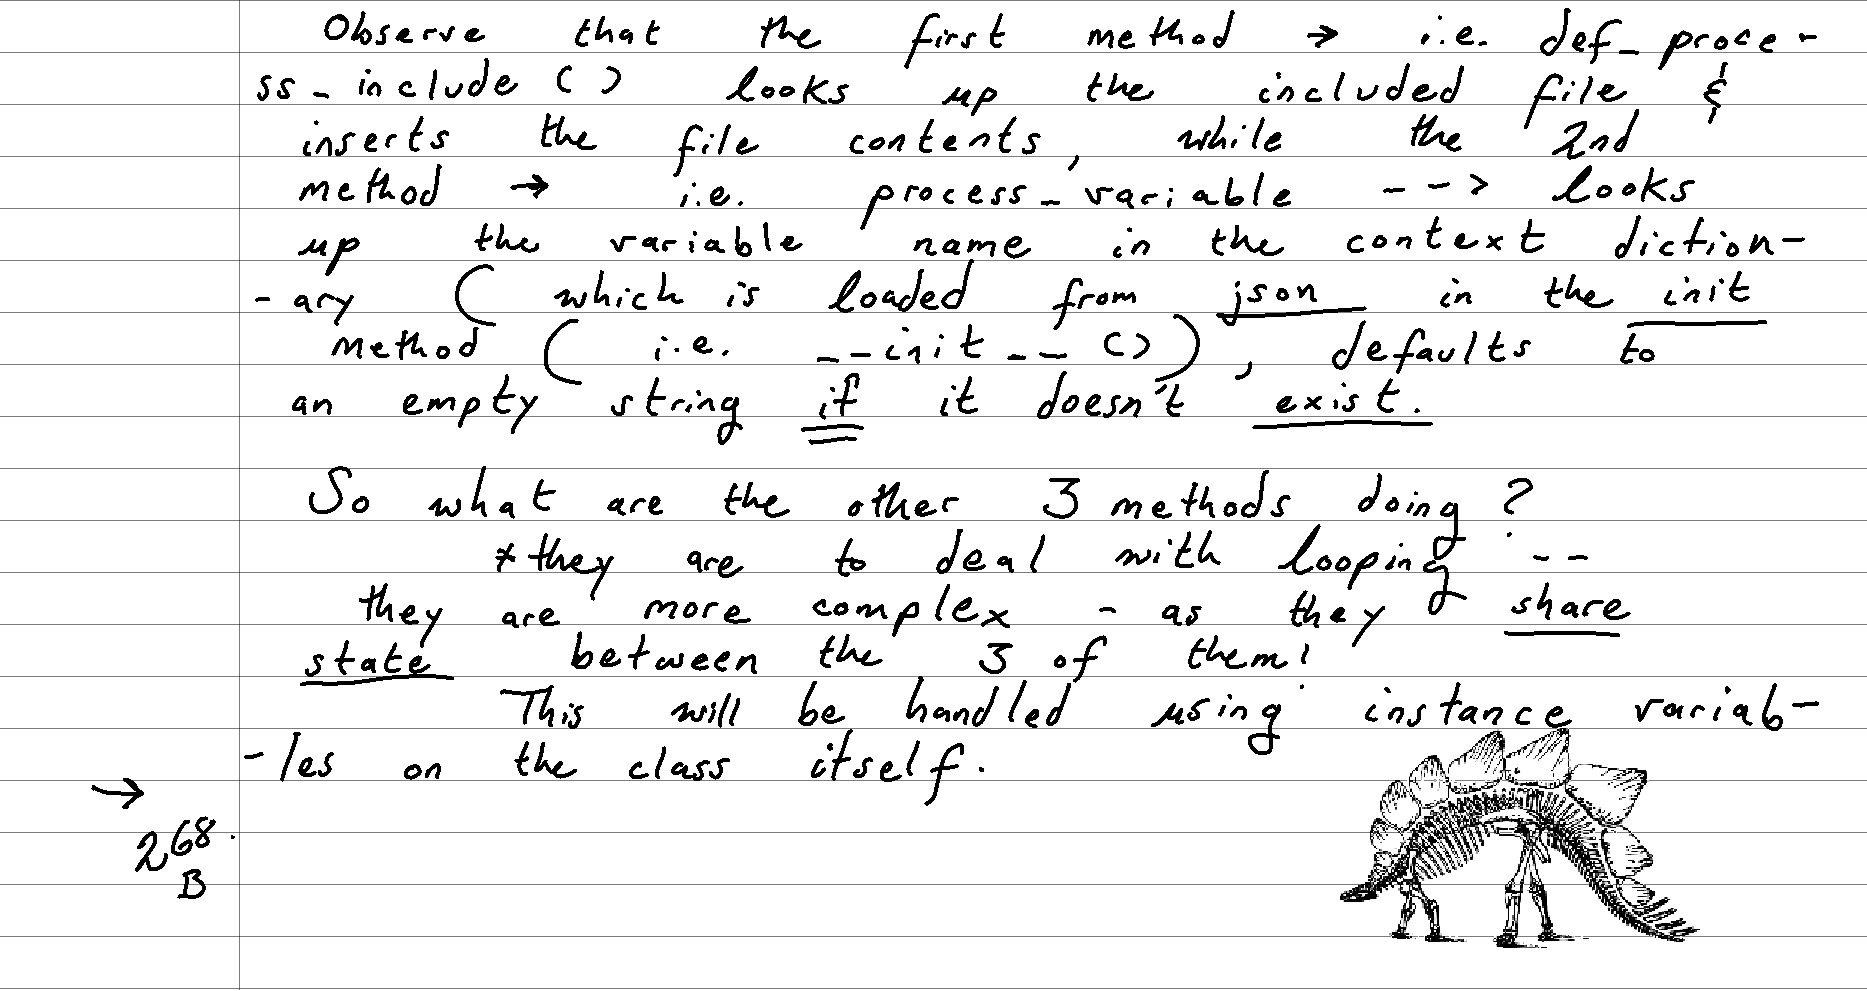 Observe that the first method → i.e. def_proce-
ss_include () looks up the included file &
inserts the file contents, while the 2nd
method → i.e. process_variable --> looks
up the variable name in the context diction-
-ary ( which is loaded from json in the init
method ( i.e. __init__ () ) , defaults to
an empty string if it doesn't exist.
So what are the other 3 methods doing ?
*they are to deal with looping --
they are more complex - as they share
state between the 3 of them!
This will be handled using instance variab-
-les on the class itself.
→
268
B